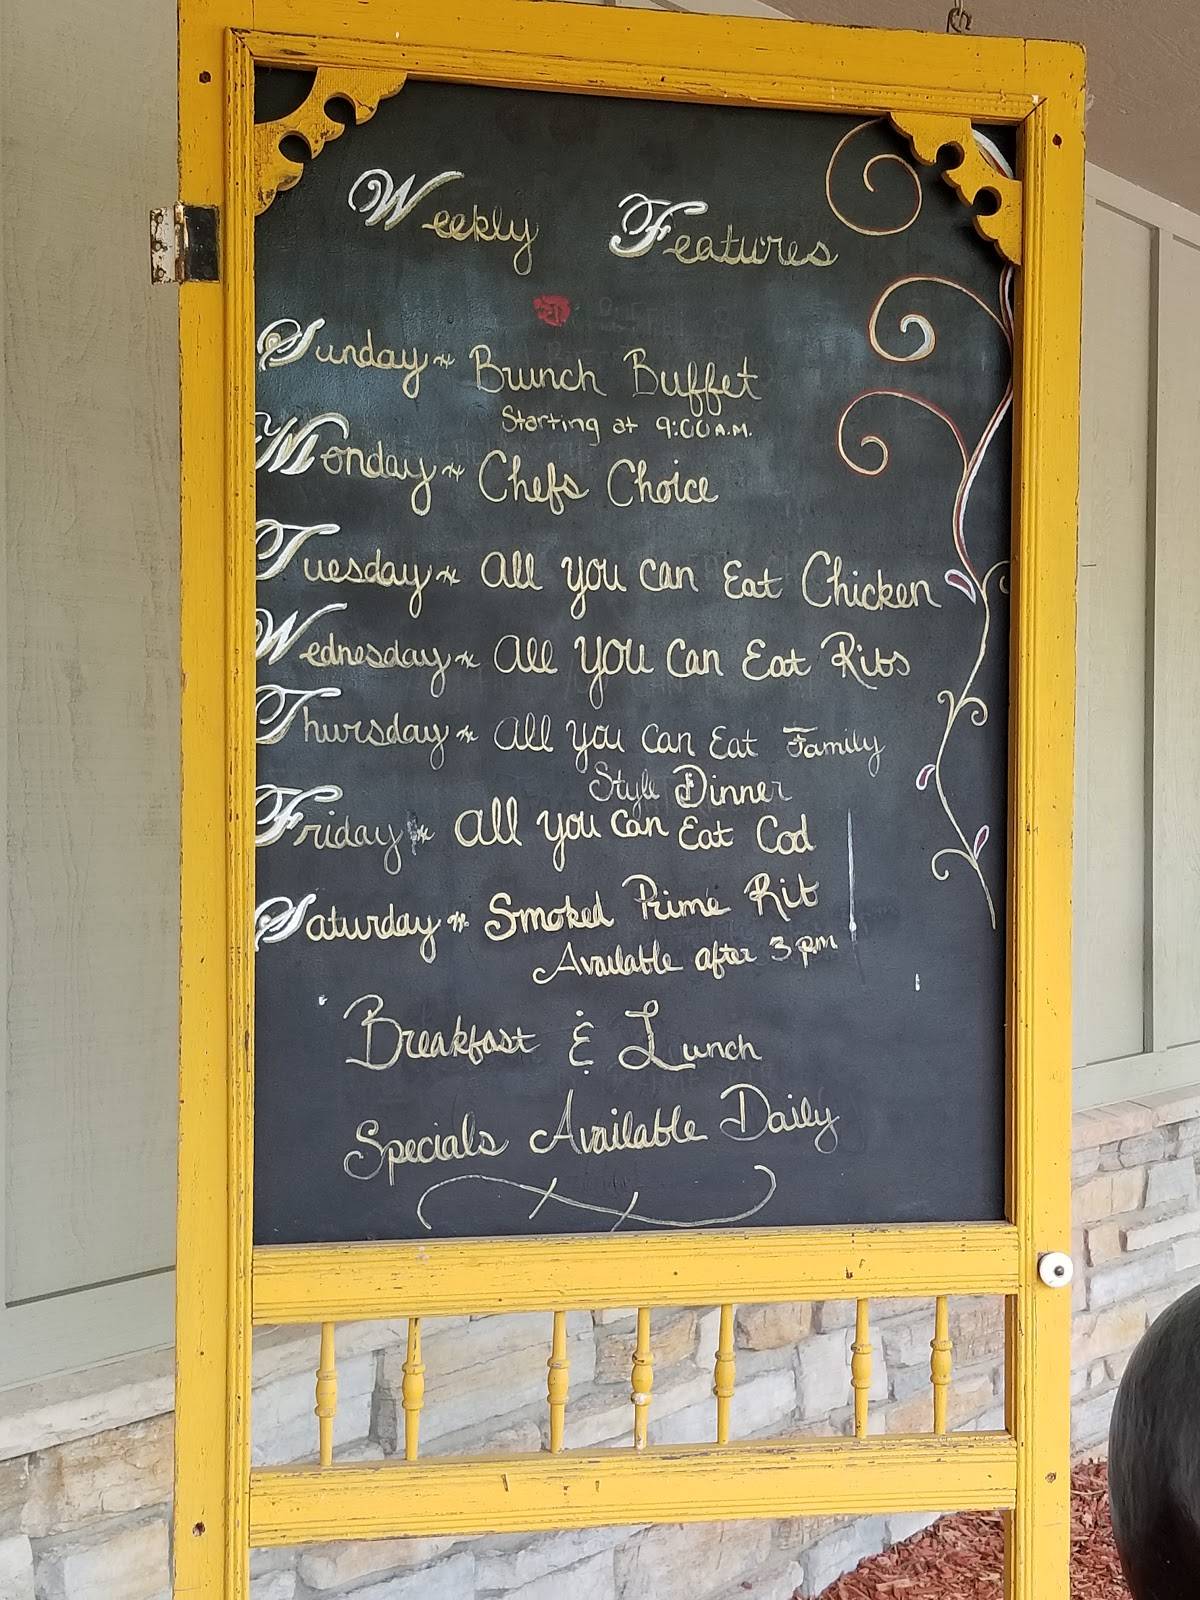 Weekly Features
Sunday~ Brunch Buffet
Starting at 9:00 A.M.
Monday~ Chefs Choice
Tuesday~ All you can Eat Chicken
Wednesday~ All you can Eat Ribs
Thursday~ All you can Eat Family
Style Dinner
Friday~ All you can Eat Cod
Saturday~ Smoked Prime Rib
Available after 3 pm
Breakfast & Lunch
Specials Available Daily